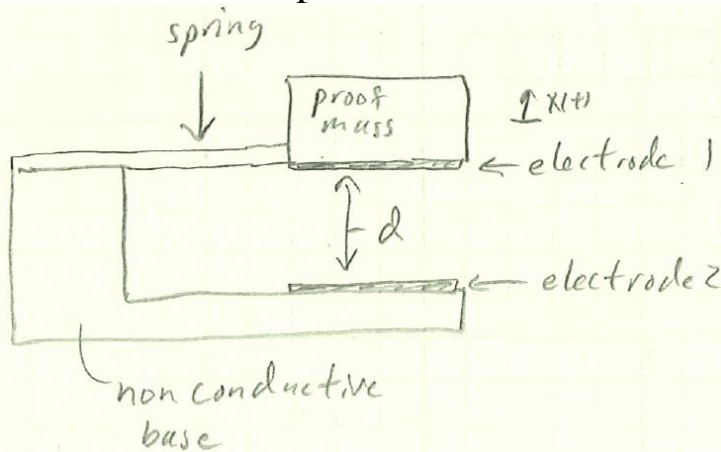 spring
proof
mass
x(t)
electrode 1
d
electrode 2
non conductive
base